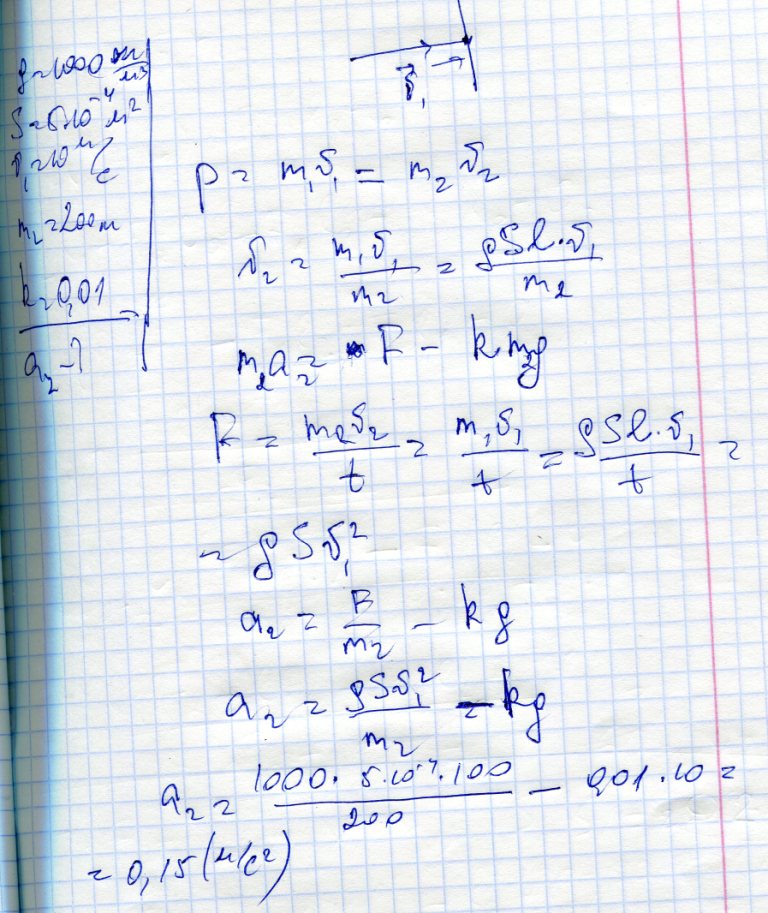 ρ = 1000 кг/м³
S = 5·10⁻⁴ м²
v₁ = 10 м/с
m₂ = 200
k = 0,01
a₂ - ?
v⃗₁
p = m₁v₁ = m₂v₂
v₂ = m₁v₁/m₂ = ρSl·v₁/m₂
m₂a₂ = F - km₂g
F = m₂v₂/t = m₁v₁/t = ρSl·v₁/t =
= ρSv₁²
a₂ = F/m₂ - kg
a₂ = ρSv₁²/m₂ - kg
a₂ = 1000·5·10⁻⁴·100/200 - 0,01·10 =
= 0,15 (м/с²)